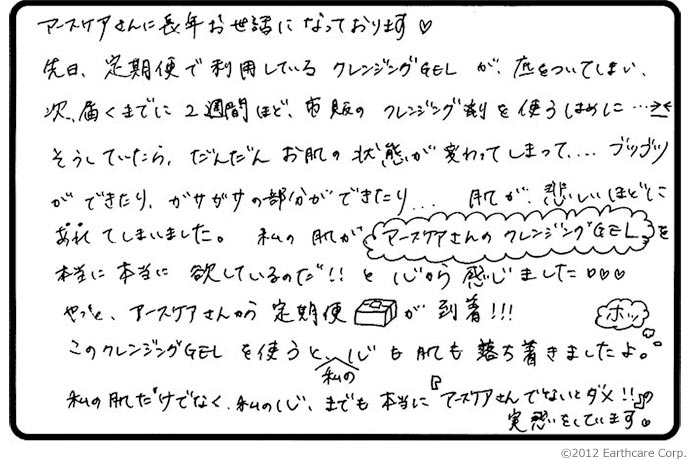 アースケアさんに長年お世話になっております♡
先日、定期便で利用しているクレンジングGELが、底をついてしまい、
次、届くまでに2週間ほど、市販のクレンジング剤を使うはめに…><
そうしていたら、だんだんお肌の状態が変わってしまって、… ブツブツ
ができたり、ガサガサの部分ができたり… 肌が、悲しいほどに
あれてしまいました。私の肌がアースケアさんのクレンジングGELを
本当に本当に欲しているのだ!!と心から感じました♡♡♡
やっと、アースケアさんから定期便が到着!!!
ホッ
このクレンジングGELを使うと、私の心も肌も落ち着きましたよ。
私の肌だけでなく、私の心、までも本当に『アースケアさんでないとダメ!!』の
実想いをしています。
©2012 Earthcare Corp.